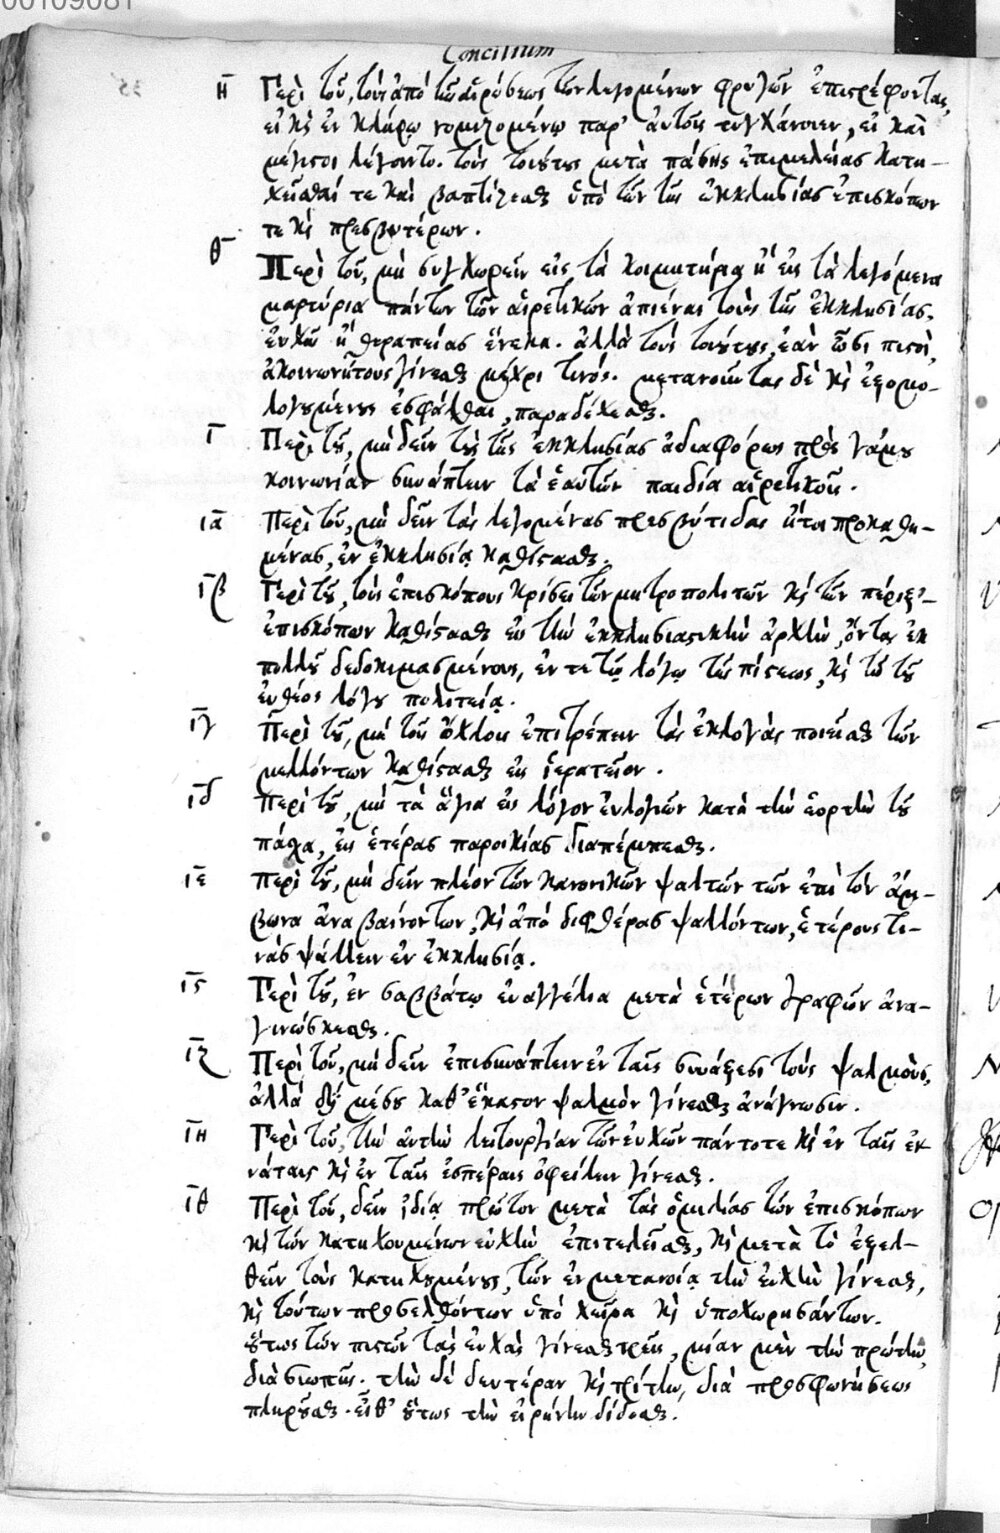 00109081
Concilium
η Περὶ τοῦ, τοὺς ἀπὸ τῆς αἱρέσεως τῶν λεγομένων φρυγῶν ἐπιστρέφοντας,
εἰ κὶ ἐν κλήρῳ νομιζομένῳ παρ' αὐτοῖς τυγχάνοιεν, εἰ καὶ
μέγιστοι λέγοιντο. τοὺς τοιούτους μετὰ πάσης ἐπιμελείας κατη-
χεῖσθαί τε καὶ βαπτίζεσθαι ὑπὸ τῶν τῆς ἐκκλησίας ἐπισκόπων
τε κὶ πρεσβυτέρων.
θ Περὶ τοῦ, μὴ συγχωρεῖν εἰς τὰ κοιμητήρια ἢ εἰς τὰ λεγόμενα
μαρτύρια πάντων τῶν αἱρετικῶν ἀπιέναι τοὺς τῆς ἐκκλησίας,
εὐχῆς ἢ θεραπείας ἕνεκα. ἀλλὰ τοὺς τοιούτους, ἐὰν ὦσι πιστοὶ,
ἀκοινωνήτους γίνεσθαι μέχρι τινός. μετανοοῦντας δὲ κὶ ἐξομο-
λογουμένους ἐσφάλθαι, παραδέχεσθαι.
ι Περὶ τοῦ, μὴ δεῖν τοὺς τῆς ἐκκλησίας ἀδιαφόρως πρὸς γάμου
κοινωνίαν συνάπτειν τὰ ἑαυτῶν παιδία αἱρετικοῖς.
ια Περὶ τοῦ, μὴ δεῖν τὰς λεγομένας πρεσβύτιδας ἤτοι προκαθη-
μένας, ἐν ἐκκλησίᾳ καθίστασθαι.
ιβ Περὶ τοῦ, τοὺς ἐπισκόπους κρίσει τῶν μητροπολιτῶν κὶ τῶν πέριξ
ἐπισκόπων καθίστασθαι ἐν τῇ ἐκκλησιαστικὴν ἀρχὴν, ὄντας ἐκ
πολλοῦ δεδοκιμασμένους, ἐν τε τῷ λόγῳ τῆς πίστεως, κὶ τῇ τοῦ
εὐθέος λόγου πολιτείᾳ.
ιγ Περὶ τοῦ, μὴ τοῖς ὄχλοις ἐπιτρέπειν τὰς ἐκλογὰς ποιεῖσθαι τῶν
μελλόντων καθίστασθαι εἰς ἱερατεῖον.
ιδ Περὶ τοῦ, μὴ τὰ ἅγια εἰς λόγον εὐλογιῶν κατὰ τὴν ἑορτὴν τοῦ
πάσχα, εἰς ἑτέρας παροικίας διαπέμπεσθαι.
ιε Περὶ τοῦ, μὴ δεῖν πλέον τῶν κανονικῶν ψαλτῶν τῶν ἐπὶ τὸν ἄμ-
βωνα ἀναβαινόντων, κὶ ἀπὸ διφθέρας ψαλλόντων, ἑτέρους τι-
νὰς ψάλλειν ἐν ἐκκλησίᾳ.
ις Περὶ τοῦ, ἐν σαββάτῳ εὐαγγέλια μετὰ ἑτέρων γραφῶν ἀνα-
γινώσκεσθαι.
ιζ Περὶ τοῦ, μὴ δεῖν ἐπισυνάπτειν ἐν ταῖς συνάξεσι τοὺς ψαλμοὺς,
ἀλλὰ διὰ μέσου καθ' ἕκαστον ψαλμὸν γίνεσθαι ἀνάγνωσιν.
ιη Περὶ τοῦ, τὴν αὐτὴν λειτουργίαν τῶν εὐχῶν πάντοτε κὶ ἐν ταῖς ἐν
νάταις κὶ ἐν ταῖς ἑσπέραις ὀφείλειν γίνεσθαι.
ιθ Περὶ τοῦ, δεῖν ἰδίᾳ πρῶτον μετὰ τὰς ὁμιλίας τῶν ἐπισκόπων
κὶ τῶν κατηχουμένων εὐχὴν ἐπιτελεῖσθαι, κὶ μετὰ τὸ ἐξελ-
θεῖν τοὺς κατηχουμένους, τῶν ἐν μετανοίᾳ τὴν εὐχὴν γίνεσθαι,
κὶ τούτων προσελθόντων ὑπὸ χεῖρα κὶ ὑποχωρησάντων.
οὕτως τῶν πιστῶν τὰς εὐχὰς γίνεσθαι τρεῖς, μίαν μὲν τὴν πρώτην,
διὰ σιωπῆς. τὴν δὲ δευτέραν κὶ τρίτην, διὰ προσφωνήσεως
πληροῦσθαι. εἶθ' οὕτως τὴν εἰρήνην δίδοσθαι.